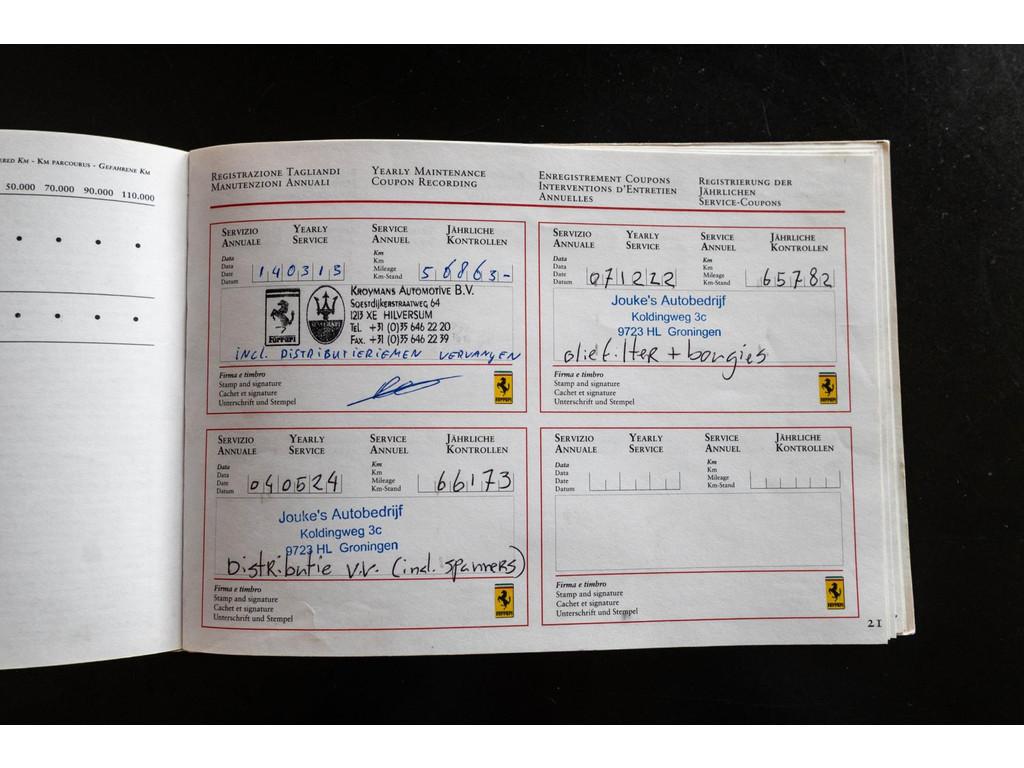 ered Km - Km parcourus - Gefahrene Km
50.000 70.000 90.000 110.000
Registrazione Tagliandi
Manutenzioni Annuali
Yearly Maintenance
Coupon Recording
Enregistrement Coupons
Interventions d'Entretien
Annuelles
Registrierung der
Jährlichen
Service-Coupons
Servizio Annuale
Yearly Service
Service Annuel
Jährliche Kontrollen
Data
Data
Date
Datum
140315
Km
Km
Mileage
Km-Stand
56863-
Ferrari
Maserati
Kroymans Automotive B.V.
Soestdijkerstraatweg 64
1213 XE HILVERSUM
Tel. +31 (0)35 646 22 20
Fax. +31 (0)35 646 22 39
INCL. DISTRIBUTIERIEMEN VERVANGEN
Firma e timbro
Stamp and signature
Cachet et signature
Unterschrift und Stempel
Ferrari
Servizio Annuale
Yearly Service
Service Annuel
Jährliche Kontrollen
Data
Data
Date
Datum
071222
Km
Km
Mileage
Km-Stand
65782
Jouke's Autobedrijf
Koldingweg 3c
9723 HL Groningen
oliefilter + bougies
Firma e timbro
Stamp and signature
Cachet et signature
Unterschrift und Stempel
Ferrari
Servizio Annuale
Yearly Service
Service Annuel
Jährliche Kontrollen
Data
Data
Date
Datum
040524
Km
Km
Mileage
Km-Stand
66173
Jouke's Autobedrijf
Koldingweg 3c
9723 HL Groningen
Distributie v.v. (incl. spanners)
Firma e timbro
Stamp and signature
Cachet et signature
Unterschrift und Stempel
Ferrari
Servizio Annuale
Yearly Service
Service Annuel
Jährliche Kontrollen
Data
Data
Date
Datum
Km
Km
Mileage
Km-Stand
Firma e timbro
Stamp and signature
Cachet et signature
Unterschrift und Stempel
Ferrari
21